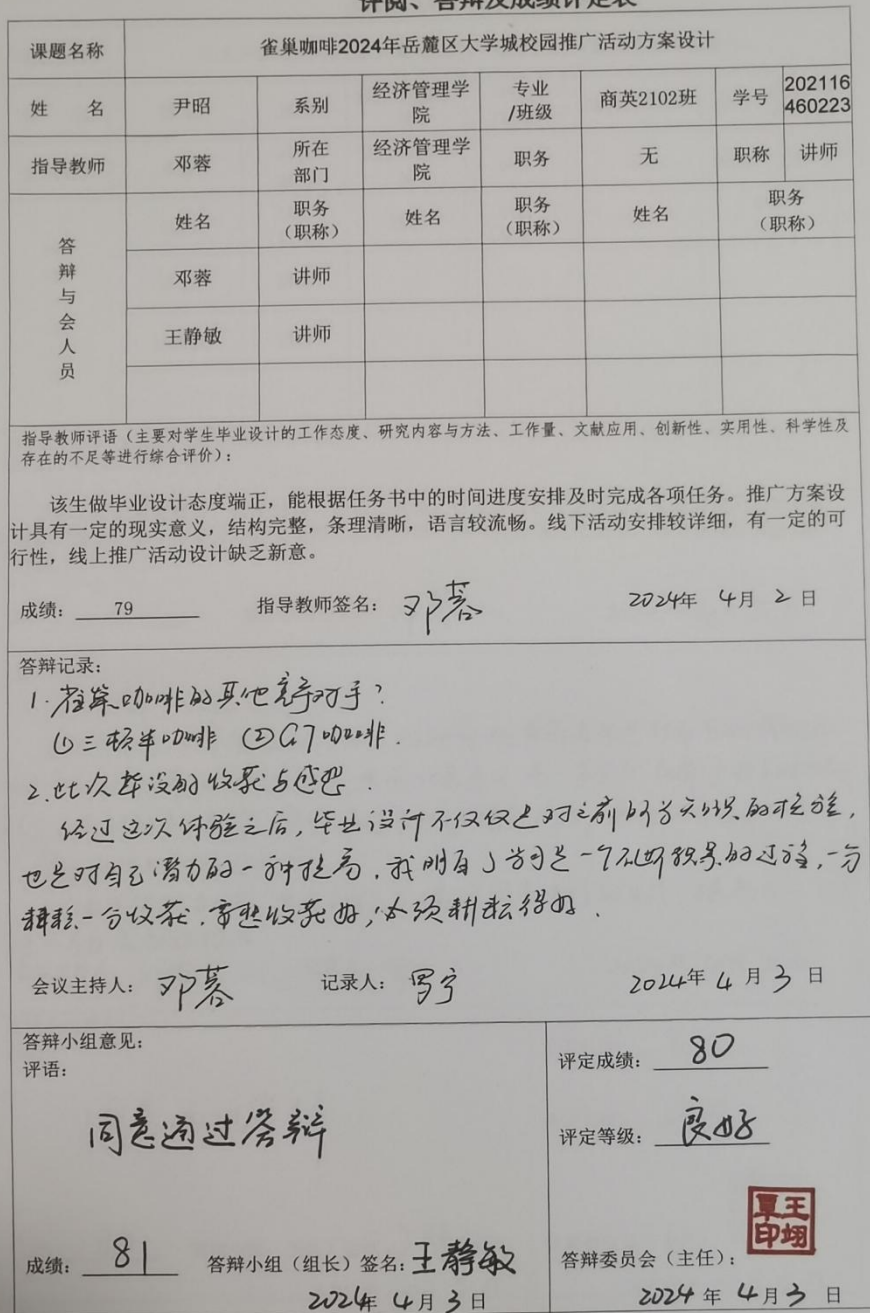 评阅、答辩及成绩评定表
课题名称 雀巢咖啡2024年岳麓区大学城校园推广活动方案设计
姓 名 尹昭 系别 经济管理学院 专业/班级 商英2102班 学号 202116460223
指导教师 邓蓉 所在部门 经济管理学院 职务 无 职称 讲师
答辩与会人员
姓名 职务（职称） 姓名 职务（职称） 姓名 职务（职称）
邓蓉 讲师
王静敏 讲师
指导教师评语（主要对学生毕业设计的工作态度、研究内容与方法、工作量、文献应用、创新性、实用性、科学性及
存在的不足等进行综合评价）：
该生做毕业设计态度端正，能根据任务书中的时间进度安排及时完成各项任务。推广方案设
计具有一定的现实意义，结构完整，条理清晰，语言较流畅。线下活动安排较详细，有一定的可
行性，线上推广活动设计缺乏新意。
成绩： 79 指导教师签名： 邓蓉 2024年 4月 2 日
答辩记录：
1.雀巢咖啡的其他竞争对手？
①三顿半咖啡 ②G7咖啡.
2.此次毕设的收获与感想.
经过这次体验之后，毕业设计不仅仅是对之前所学知识的检验，
也是对自己潜力的一种提高，我明白了学习是一个不断积累的过程，一分
耕耘一分收获，要想收获好，必须耕耘得好.
会议主持人： 邓蓉 记录人： 罗宁 2024年 4 月 3 日
答辩小组意见：
评语：
同意通过答辩
成绩： 81 答辩小组（组长）签名：王静敏
2024年 4月 3 日
评定成绩： 80
评定等级： 良好
答辩委员会（主任）：
王翊覃印
2024 年 4月 3 日